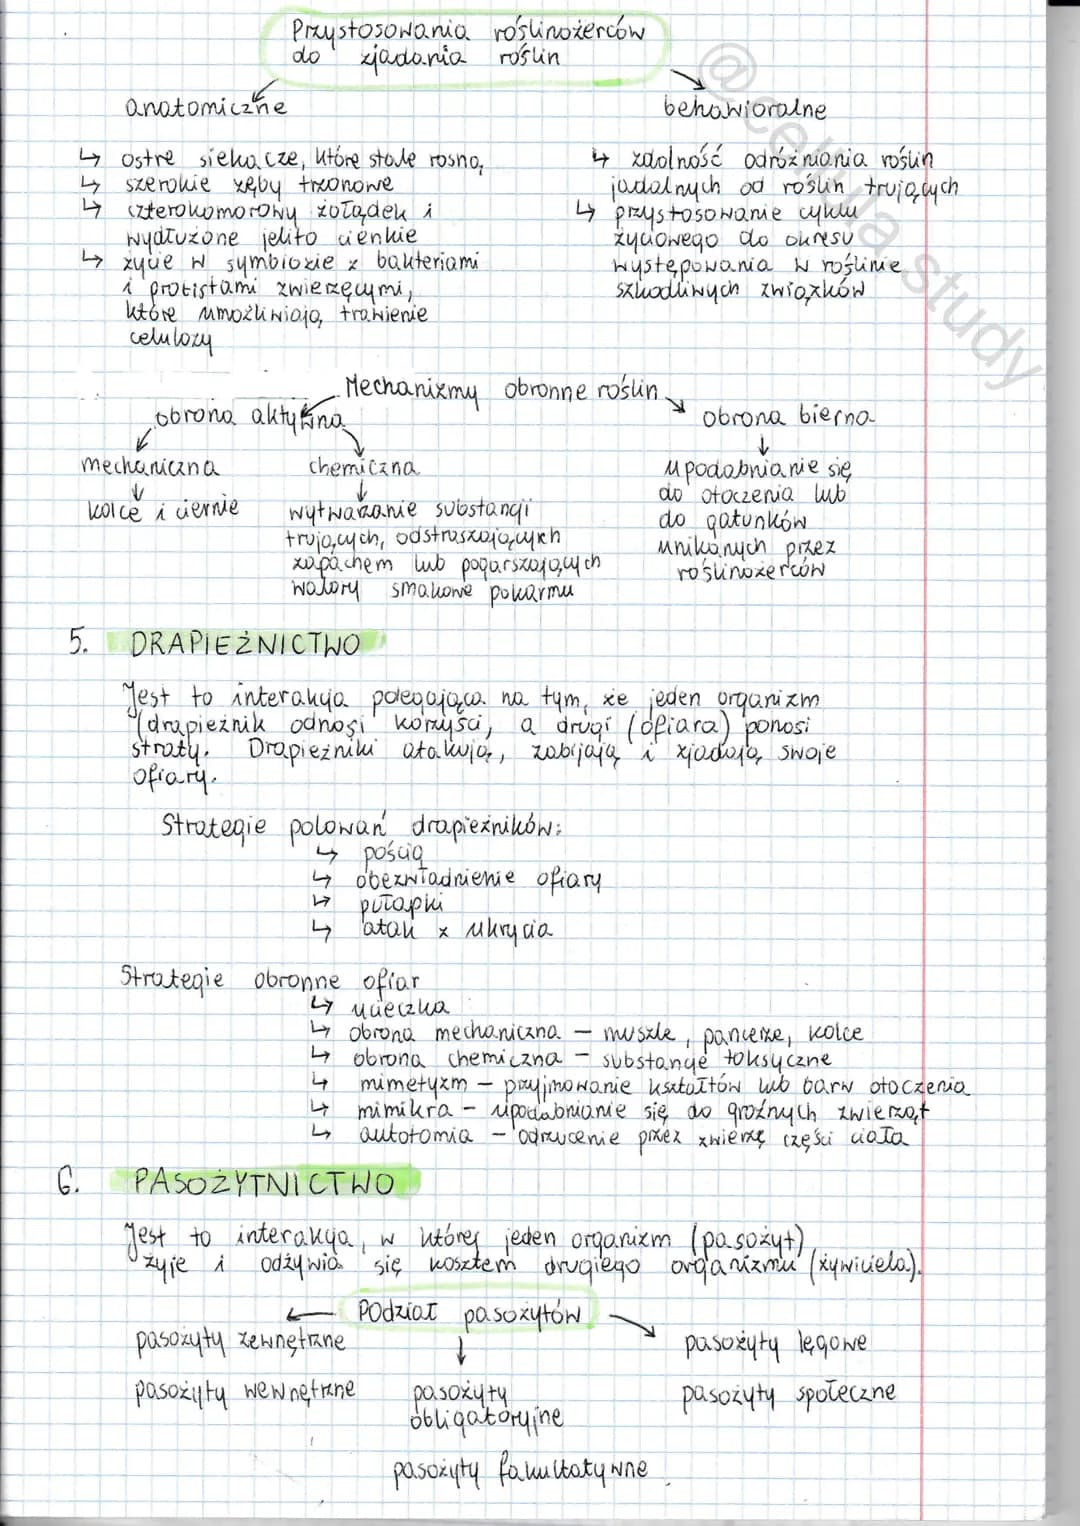 Przystosowania roślinożerców
do zjadania roślin
anatomiczne
↳ ostre siekacze, które stale rosną,
↳ szerokie zęby trzonowe
↳ czterokomorowy żołądek i
wydłużone jelito cienkie
↳ życie w symbiozie z bakteriami
i protistami zwierzęcymi,
które umożliwiają trawienie
celulozy
behawioralne
↳ zdolność odróżniania roślin
jadalnych od roślin trujących
↳ przystosowanie cyklu
życiowego do okresu
występowania w roślinie
szkodliwych związków
Mechanizmy obronne roślin
obrona aktywna
mechaniczna
kolce i ciernie
chemiczna
wytwarzanie substancji
trujących, odstraszających
zapachem lub pogarszających
walory smakowe pokarmu
obrona bierna
upodabnianie się
do otoczenia lub
do gatunków
unikanych przez
roślinożerców
5. DRAPIEŻNICTWO
Jest to interakcja polegająca na tym, że jeden organizm
(drapieżnik odnosi korzyści, a drugi (ofiara) ponosi
straty. Drapieżniki atakują, zabijają i zjadają swoje
ofiary.
Strategie polowań drapieżników:
↳ pościg
↳ obezwładnienie ofiary
↳ pułapki
↳ atak z ukrycia
Strategie obronne ofiar
↳ ucieczka
↳ obrona mechaniczna – muszle, pancerze, kolce
↳ obrona chemiczna – substancje toksyczne
↳ mimetyzm – przyjmowanie kształtów lub barw otoczenia
↳ mimikra – upodabnianie się do groźnych zwierząt
↳ autotomia – odrzucenie przez zwierzę części ciała
6. PASOŻYTNICTWO
Jest to interakcja, w której jeden organizm (pasożyt)
żyje i odżywia się kosztem drugiego organizmu (żywiciela).
Podział pasożytów
pasożyty zewnętrzne
pasożyty wewnętrzne
pasożyty
obligatoryjne
pasożyty fakultatywne
pasożyty lęgowe
pasożyty społeczne
@cellula.study